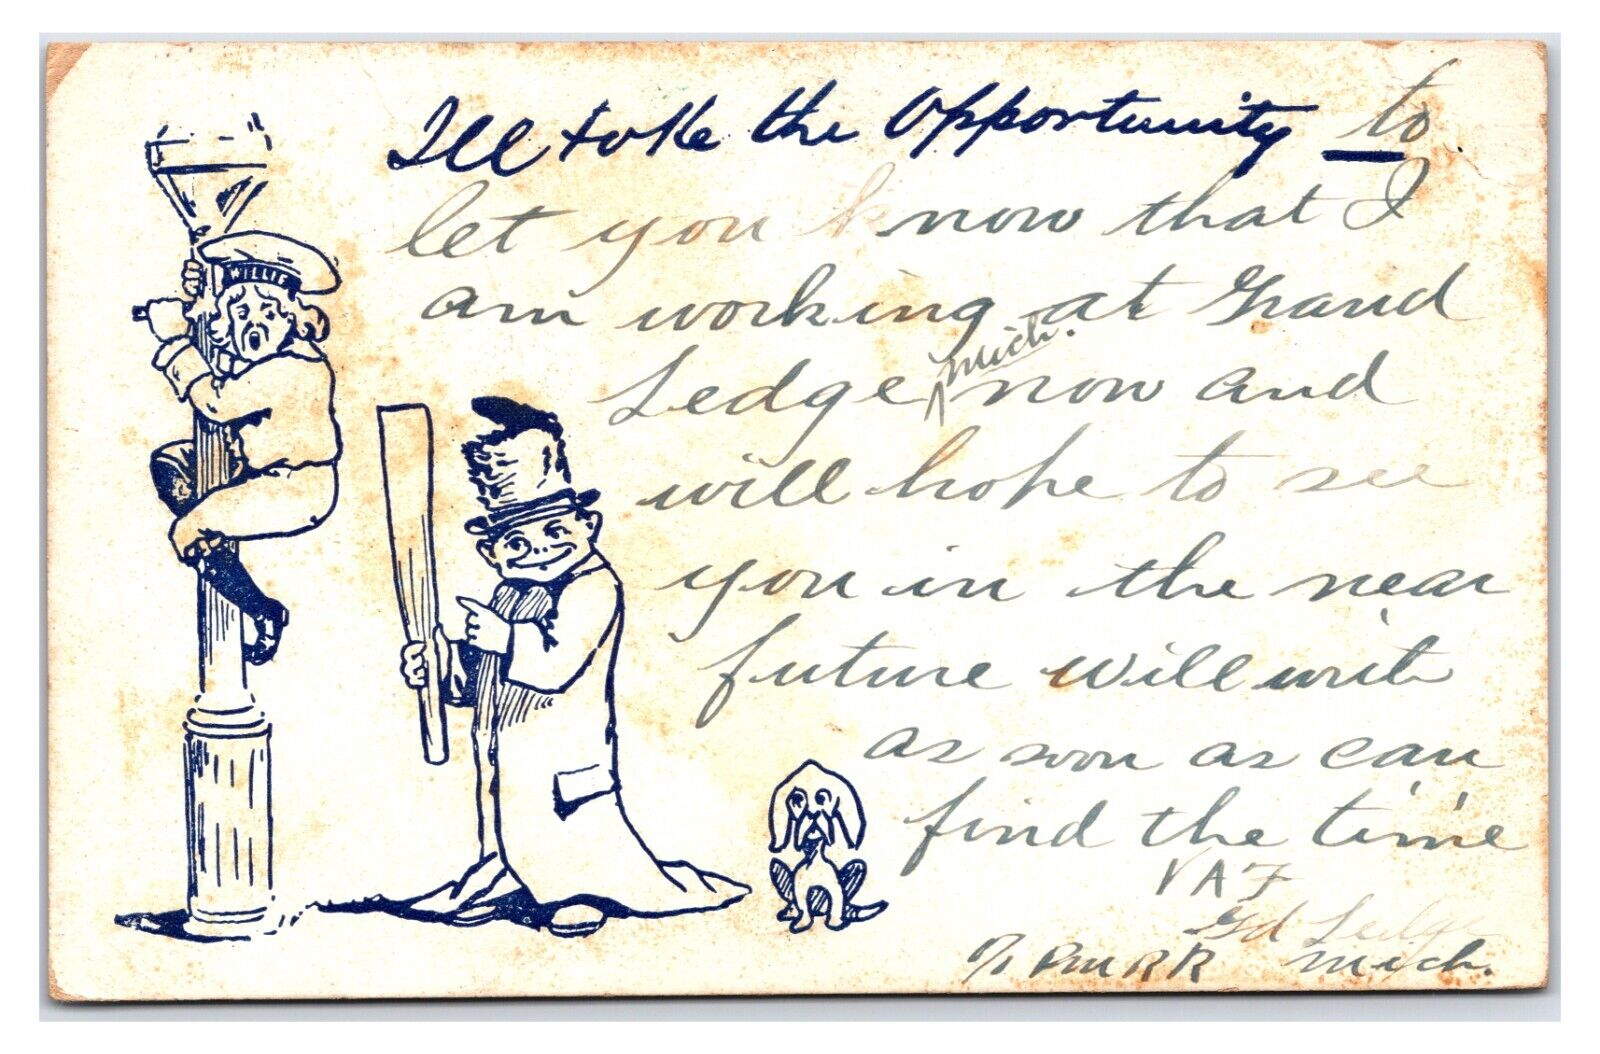 WILLIE
Ill take the Opportunity to
let you know that I
am working at Grand
Ledge Mich. now and
will hope to see
you in the near
future will writ
as soon as can
find the time
VAF
Gd Ledge
c/o PMRR Mich.